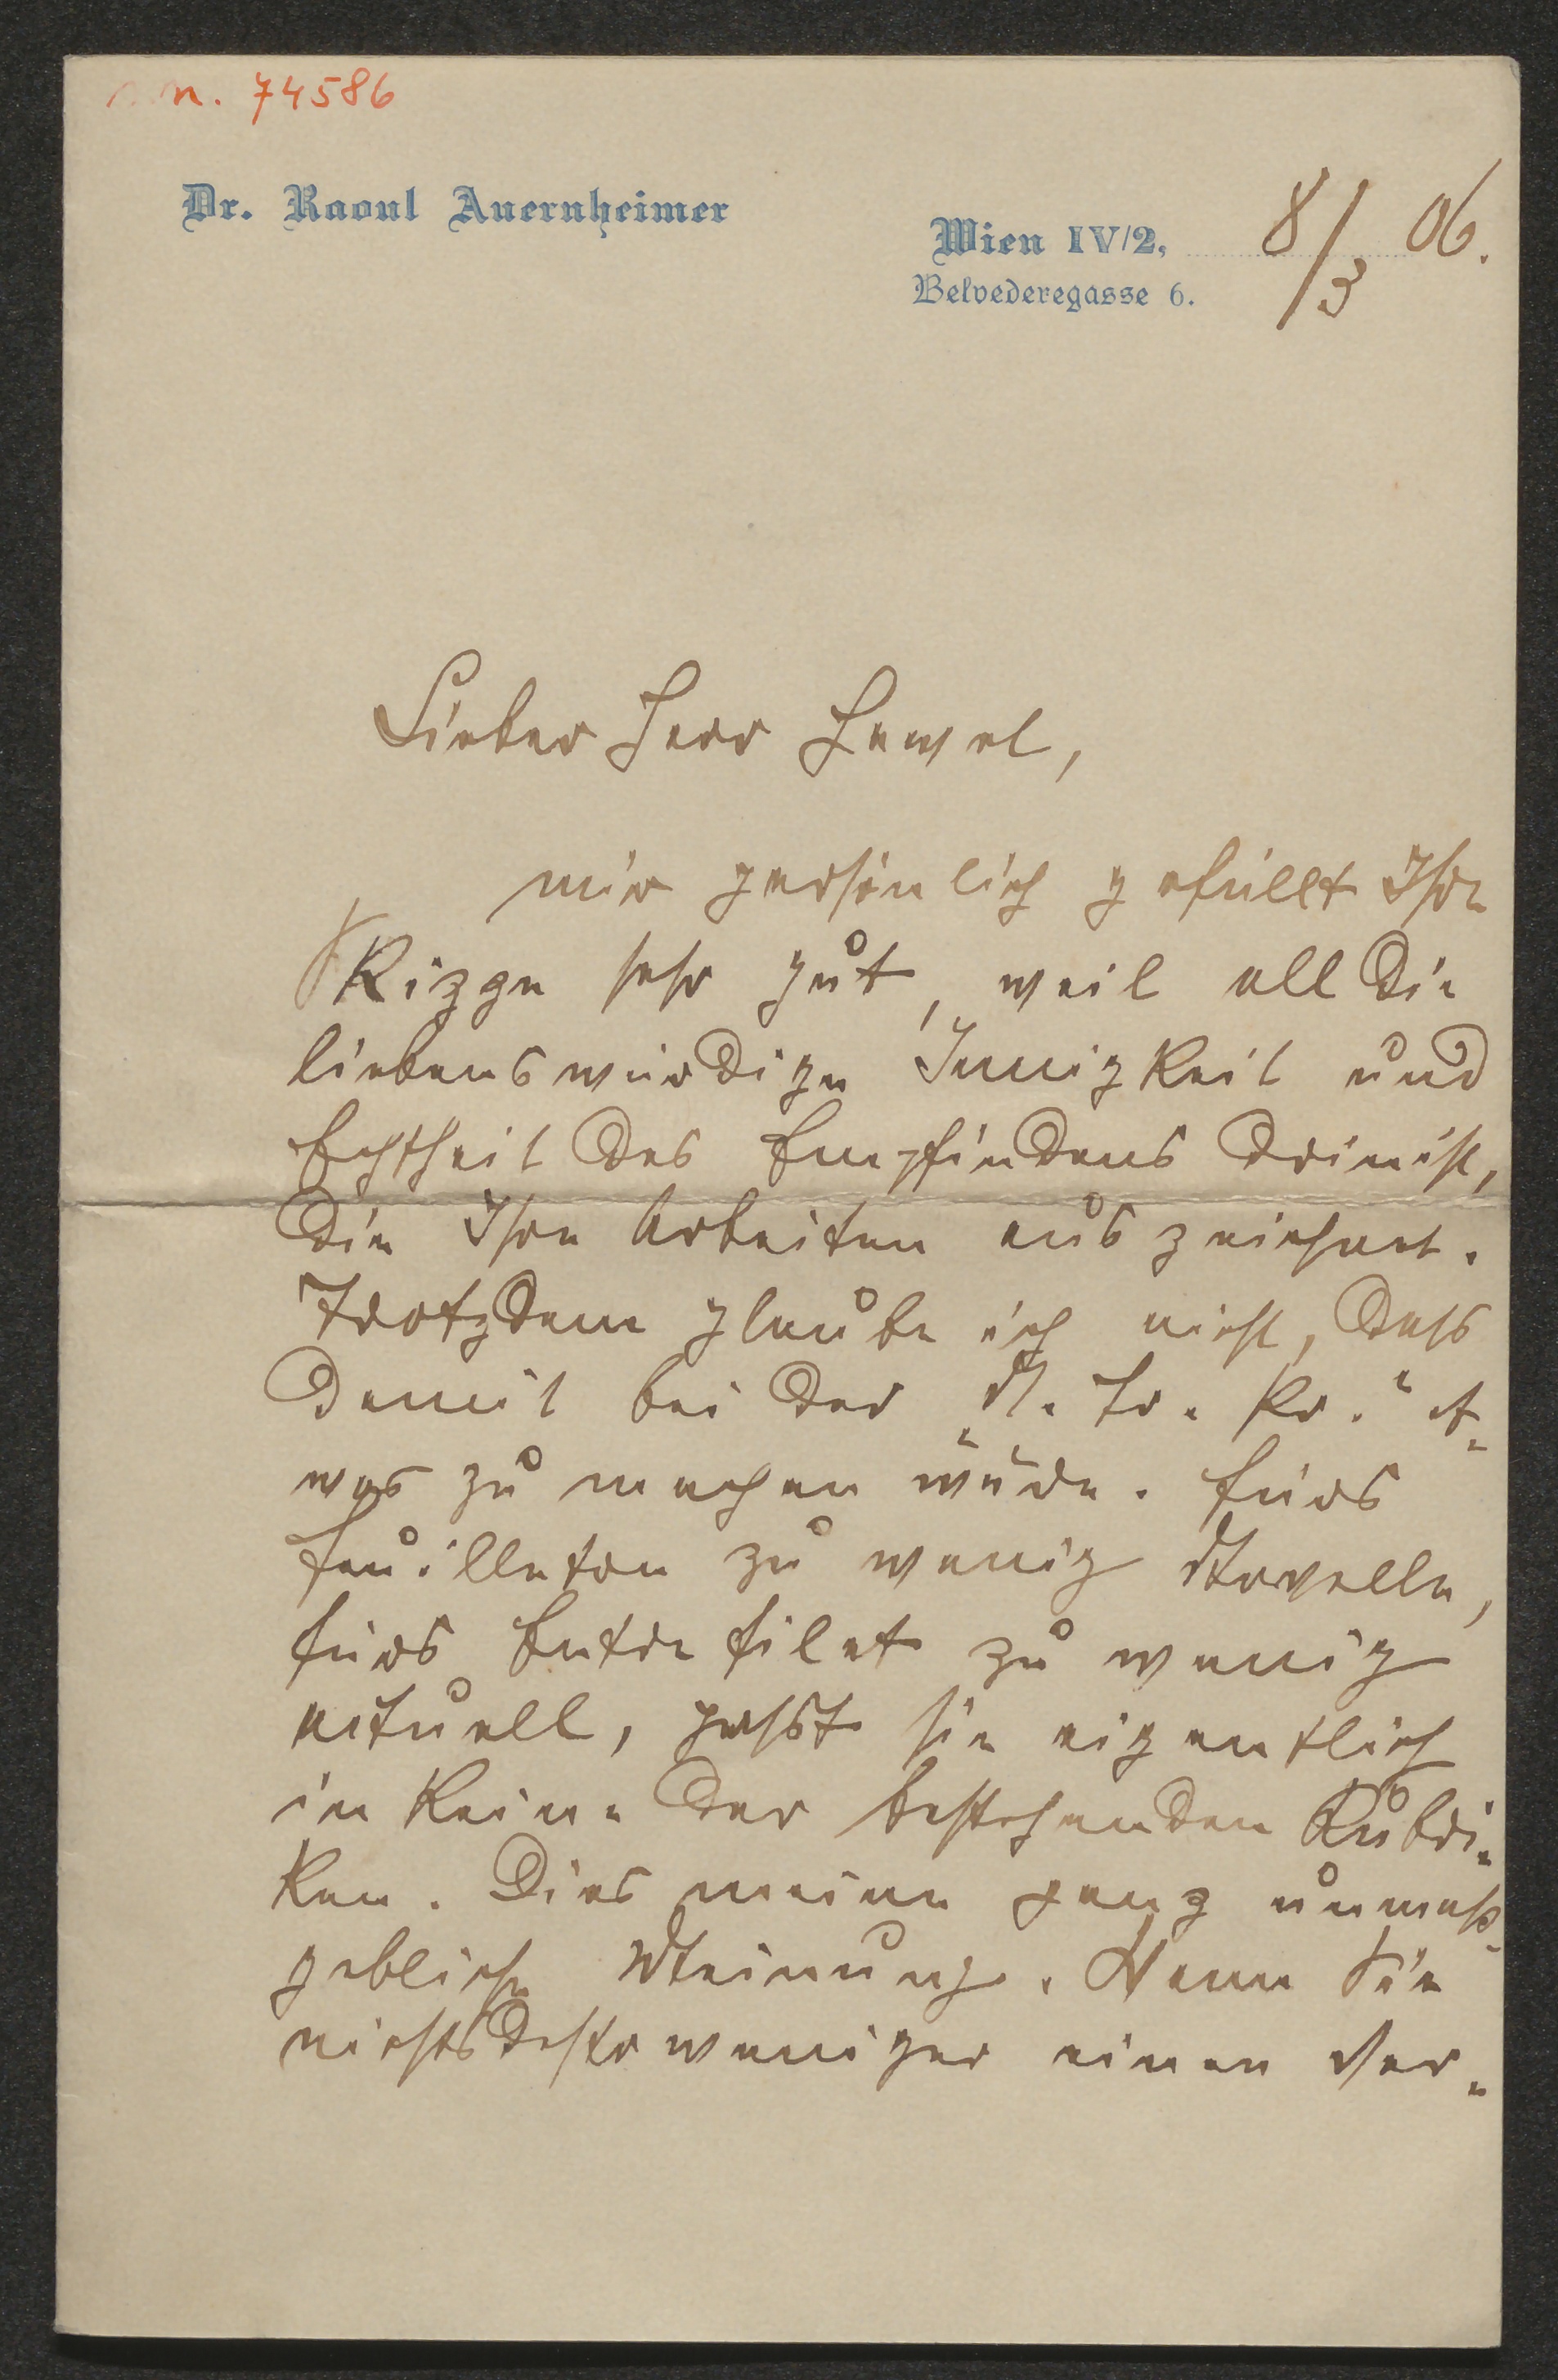 n. 74586
Dr. Raoul Auernheimer
Wien IV/2, 8/3 06.
Belvederegasse 6.
Lieber Herr Hewel,
mir persönlich gefällt Ihre
Skizze sehr gut, weil all die
liebenswürdige Innigkeit und
Echtheit des Empfindens drin ist,
die Ihre Arbeiten auszeichnet.
Trotzdem glaube ich nicht, dass
damit bei der „N. Fr. Pr.“ et-
was zu machen wäre. Fürs
Feuilleton zu wenig Novelle,
fürs Entrefilet zu wenig
aktuell, passt sie eigentlich
in keine der bestehenden Rubri-
ken. Dies meine ganz unmaß-
gebliche Meinung. Wenn Sie
nichtsdestoweniger einen Ver-